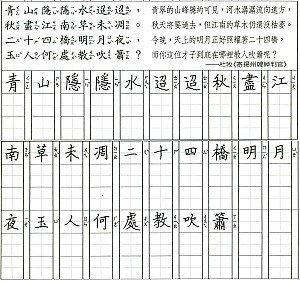 青山隱隱水迢迢，
秋盡江南草未凋。
二十四橋明月夜，
玉人何處教吹簫？
青翠的山峰隱約可見，河水潺潺流向遠方，
秋天將要過去，但江南的草木仍還沒枯萎。
今晚，天上的明月正好照耀著二十四橋，
而你這位才子到底在哪裡教人吹簫呢？
——杜牧《寄揚州韓綽判官》
青山隱隱水迢迢秋盡江
南草未凋二十四橋明月
夜玉人何處教吹簫